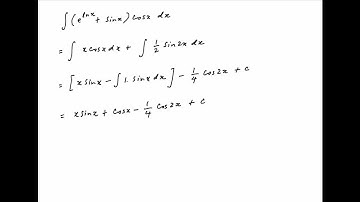 ∫ (e^{lnx} + sinx) cosx dx
= ∫ x cosx dx + ∫ 1/2 sin2x dx
= [x sinx - ∫ 1. sinx dx] - 1/4 cos2x + c
= x sinx + cosx - 1/4 cos2x + c